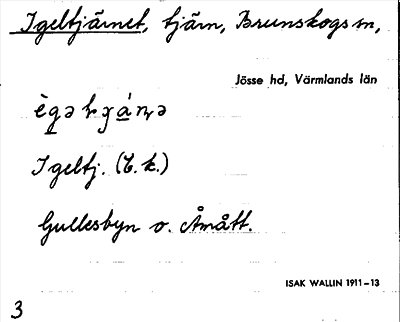 Igeltjärnet, tjärn, Brunskogs sn,
Jösse hd, Värmlands län
Igeltj. (E.k.)
Gullesbyn o. Åmått.
ISAK WALLIN 1911–13
3